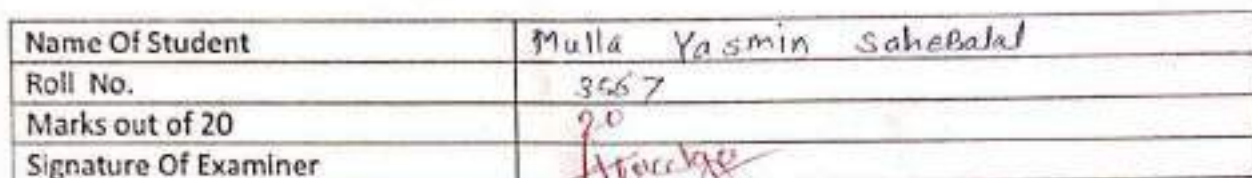 Name Of Student Mulla Yasmin SaheBalal
Roll No. 3567
Marks out of 20 20
Signature Of Examiner